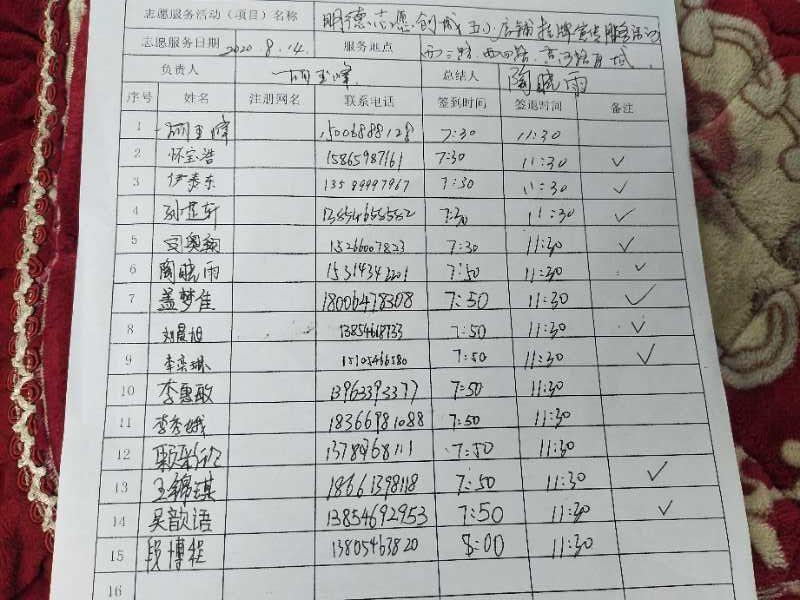 志愿服务活动（项目）名称 明德志愿创城 店铺挂牌宣传服务活动
志愿服务日期 2020.8.14. 服务地点 西二路、西四路、
负责人 总结人 陶晓雨
序号 姓名 注册网名 联系电话 签到时间 签退时间 备注
1 15006888128 7:30 11:30
2 怀宝浩 15865987161 7:30 11:30 ✓
3 伊泰东 13589997967 7:30 11:30 ✓
4 孙芷轩 13854655582 7:30 11:30 ✓
5 司奥翔 15266007823 7:30 11:30 ✓
6 陶晓雨 15314343201 7:50 11:30 ✓
7 盖梦佳 18006478308 7:50 11:30 ✓
8 刘晨旭 13854618733 7:50 11:30 ✓
9 李奕琳 15105466580 7:50 11:30 ✓
10 李惠敏 13963393377 7:50 11:30
11 李秀娥 18366981088 7:50 11:30
12 1378468111 7:50 11:30
13 王锦琪 18661398118 7:50 11:30 ✓
14 吴歆语 13854692953 7:50 11:30 ✓
15 段博程 13805463820 8:00 11:30
16